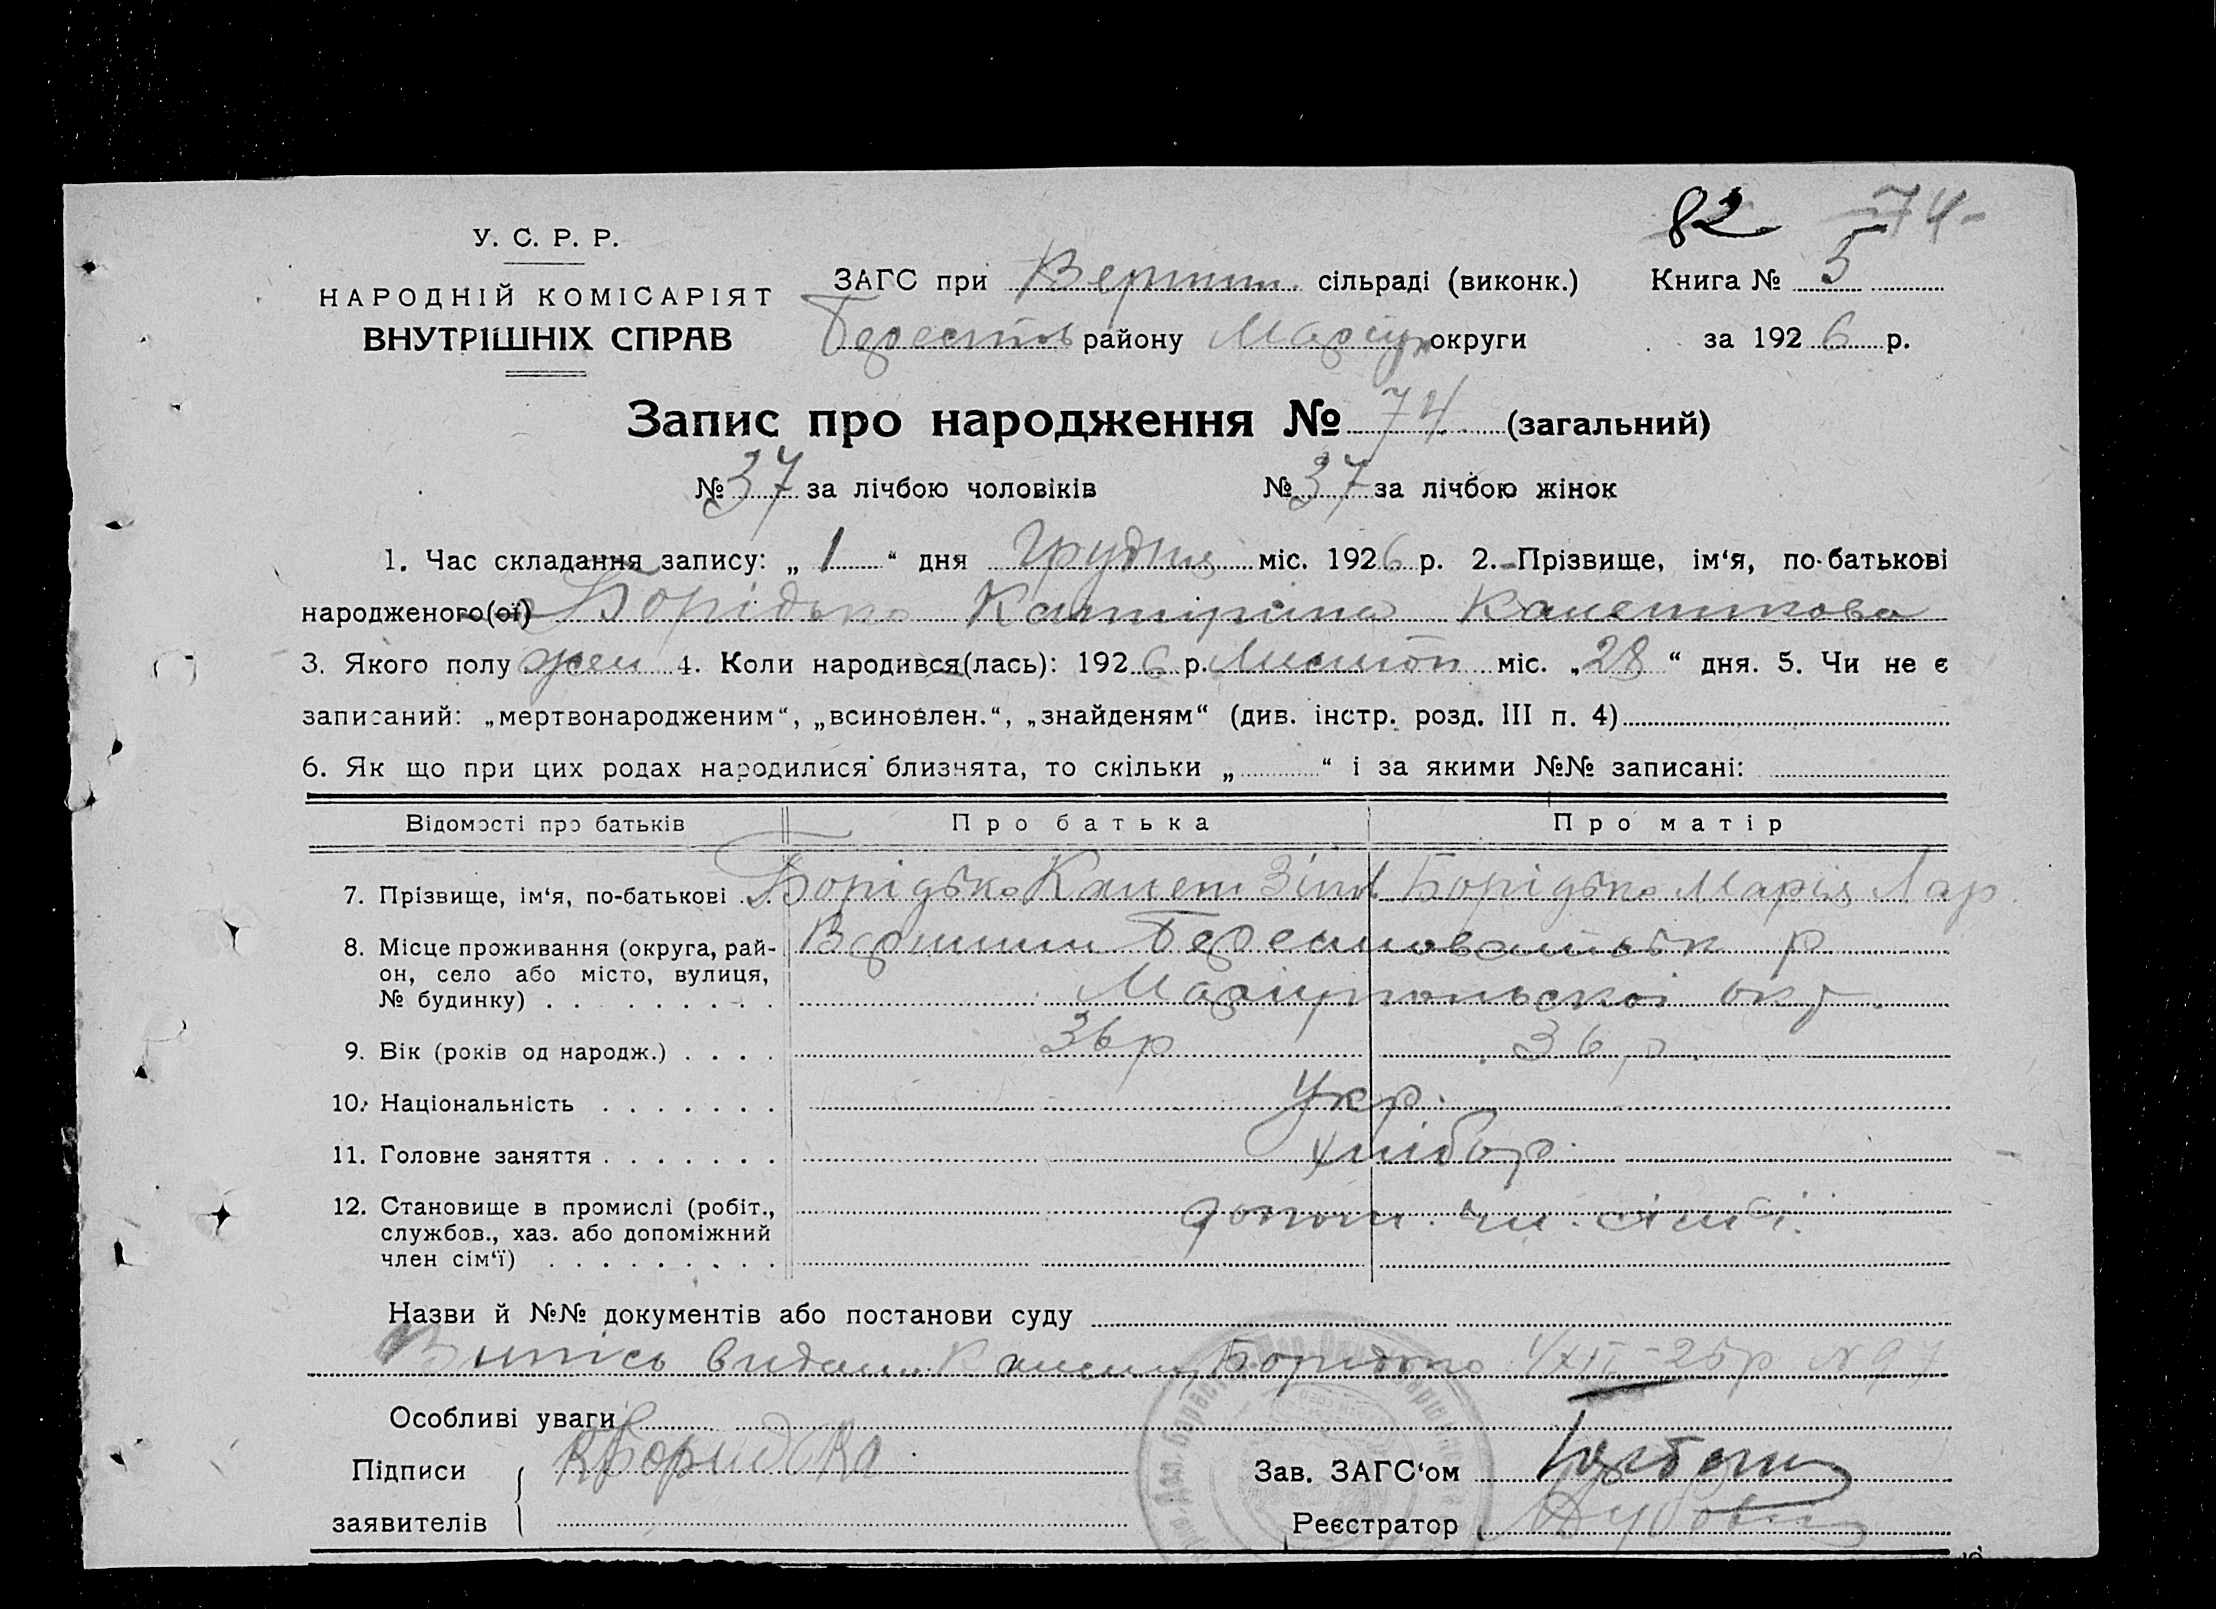 82 74-
У. С. Р. Р.
НАРОДНІЙ КОМІСАРІЯТ
ВНУТРІШНІХ СПРАВ
ЗАГС при Вершин. сільраді (виконк.) Книга № 5
Берестов району Маріуп округи за 1926 р.
Запис про народження № 74 (загальний)
№ 37 за лічбою чоловіків № 37 за лічбою жінок
1. Час складання запису: „ 1 “ дня Грудня міс. 1926 р. 2. Прізвище, ім‘я, по-батькові
народженого(ої) Борідько Катиріна
3. Якого полу жен 4. Коли народився(лась): 1926 р. Листоп міс. „28“ дня. 5. Чи не є
записаний: „мертвонародженим“, „всиновлен.“, „знайденям“ (див. інстр. розд. III п. 4)
6. Як що при цих родах народилися близнята, то скільки „ “ і за якими №№ записані:
Відомості про батьків Про батька Про матір
7. Прізвище, ім‘я, по-батькові Борідько Зінов Борідько Марія Лар
8. Місце проживання (округа, рай-
он, село або місто, вулиця,
№ будинку)
Вершини р
Маріупольскоі окр.
9. Вік (років од народж.) 36 р 36 р.
10. Національність Укр.
11. Головне заняття хлібор.
12. Становище в промислі (робіт.,
службов., хаз. або допоміжний
член сім‘ї)
допом. чл. сімї.
Назви й №№ документів або постанови суду
Випись видана Боридько 1/XII-26р №97
Особливі уваги
Підписи К Боридько Зав. ЗАГС‘ом
заявителів Реєстратор